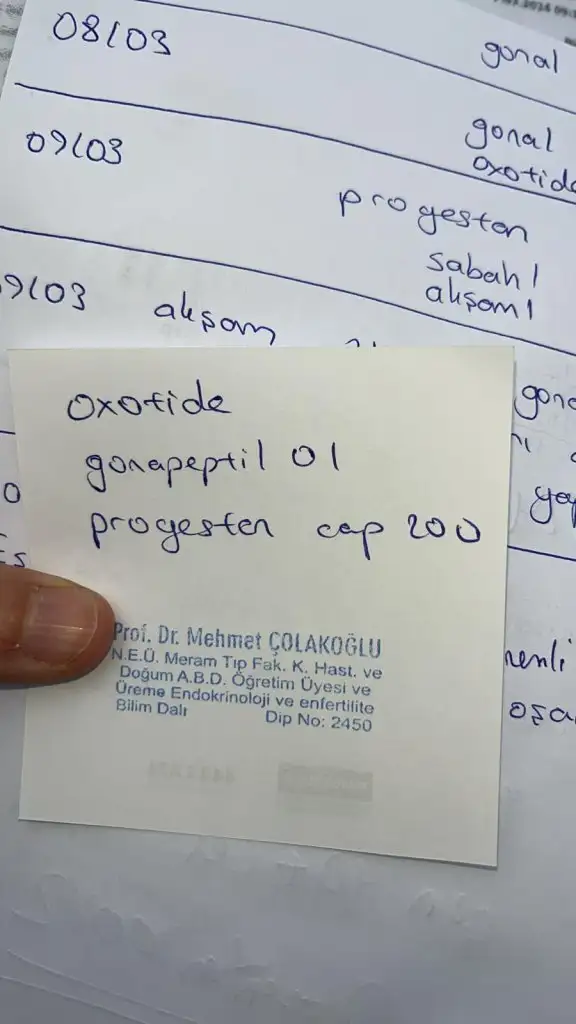 08/03
gonal
09/03
gonal
oxotide
progestan
sabah 1
akşam 1
akşam
oxotide
gonapeptil 01
progestan cap 200
Prof. Dr. Mehmet ÇOLAKOĞLU
N.E.Ü. Meram Tıp Fak. K. Hast. ve
Doğum A.B.D. Öğretim Üyesi ve
Üreme Endokrinoloji ve enfertilite
Bilim Dalı Dip No: 2450